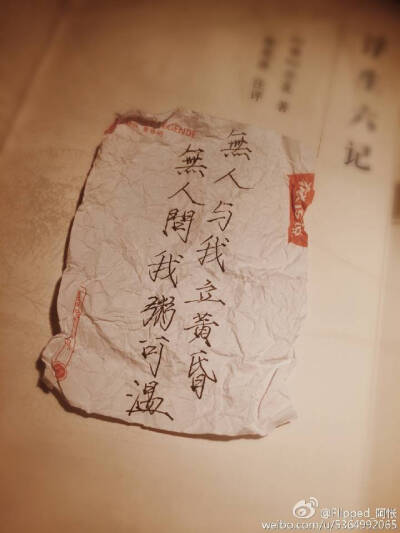 浮生六记
著
無人与我立黃昏
無人問我粥可溫
GENDE
@Flipped_阿怅
weibo.com/u/5364992065